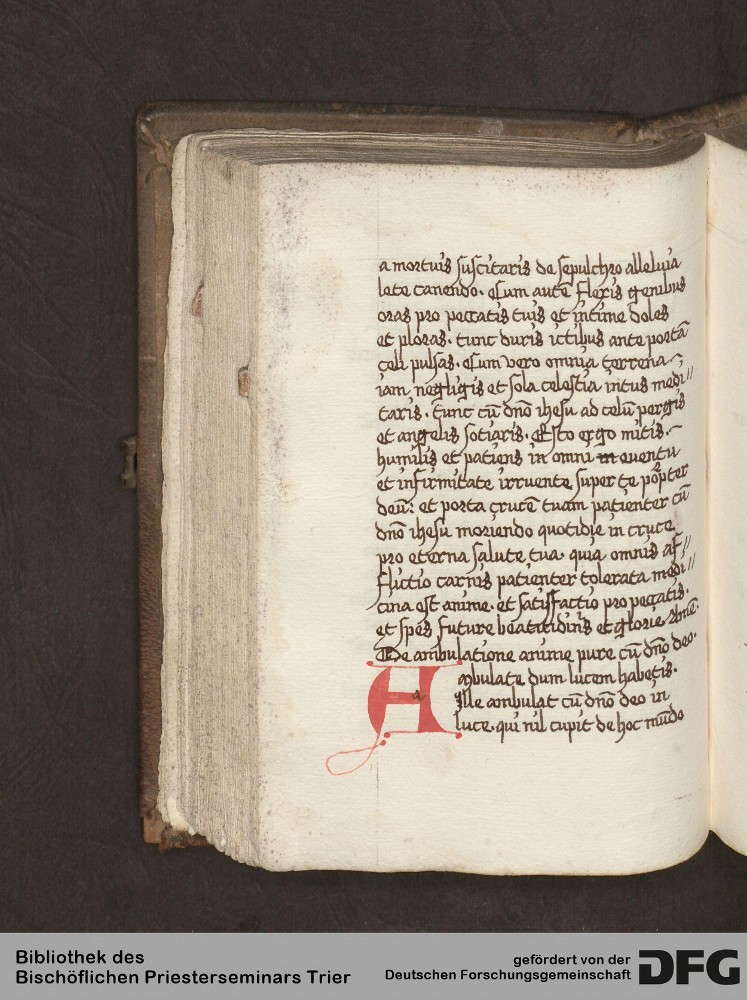 a mortuis suscitaris de sepulchro alleluia
lete canendo. Cum autē flexis genibus
oras pro peccatis tuis et intime doles
et ploras. tunc duris ictibus ante portā
celi pulsas. Cum vero omnia terrena
iam negligis et sola celestia intus medi//
taris. tunc cū dn̄o ihesu ad celū pergis
et angelis sotiaris. Esto ergo mitis.
humilis et patiens in omni in euentu
et infirmitate irruente super te propter
deū: et porta crucē tuam patienter cū
dn̄o ihesu moriendo quotidie in cruce
pro eterna salute tua. quia omnis af//
flictio carnis patienter tolerata medi//
cina est anime. et satisfactio pro peccatis.
et spes future beatitidinis et glorie. Amē.
De ambulatione anime pure cū dn̄o deo.
Ambulate dum lucem habetis.
Ille ambulat cū dn̄o deo in
luce. qui nil cupit de hoc mūdo
Bibliothek des
Bischöflichen Priesterseminars Trier
gefördert von der
Deutschen Forschungsgemeinschaft
DFG